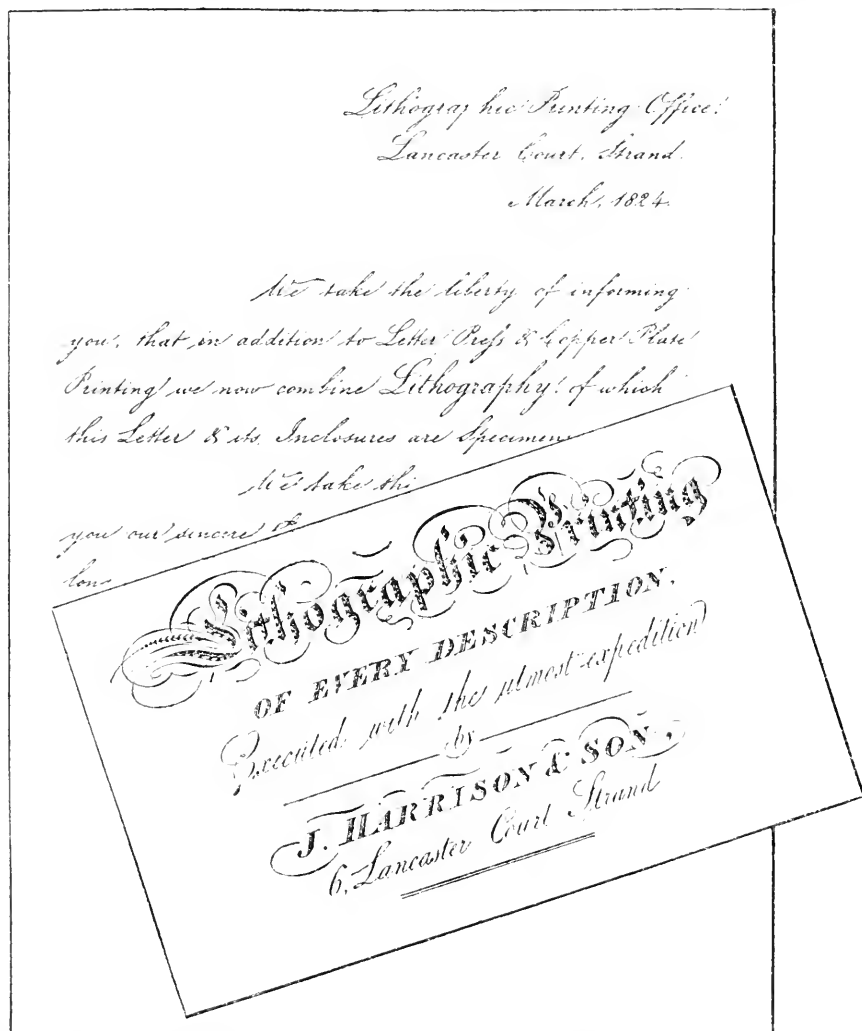 Lithographic Printing Office.
Lancaster Court, Strand.
March, 1824.
We take the liberty of informing
you, that in addition to Letter Press & Copper Plate
Printing we now combine Lithography! of which
this Letter & its Inclosures are Specimens
We take thi
you our sincere
Lithographic Printing
OF EVERY DESCRIPTION,
Executed with the utmost expedition
by
J. HARRISON & SON,
6, Lancaster Court Strand